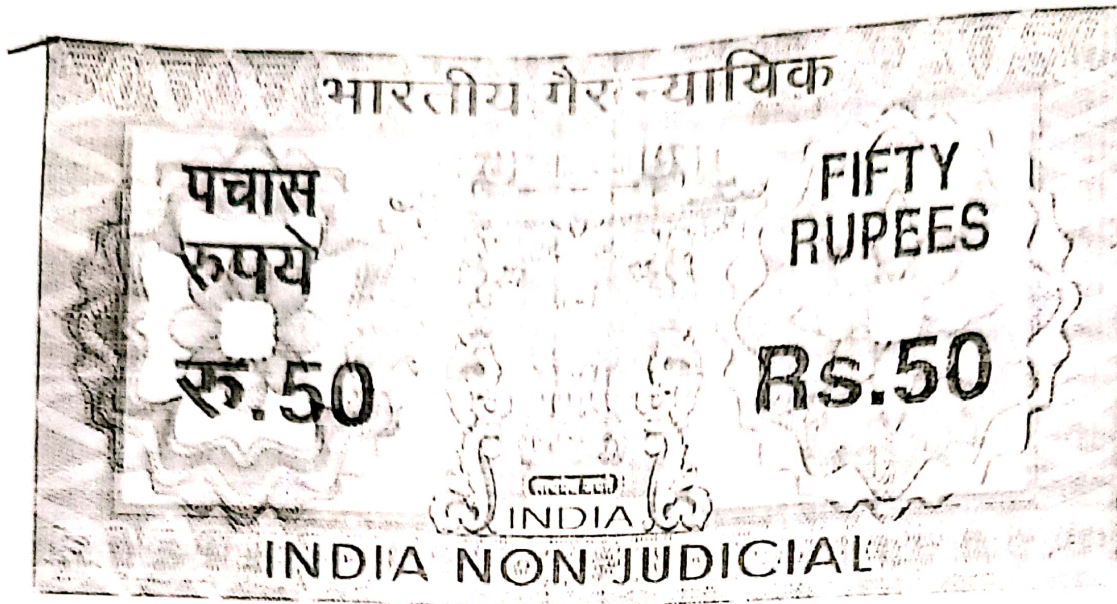 भारतीय गैर न्यायिक
पचास
रुपये
रु.50
FIFTY
RUPEES
Rs.50
INDIA
INDIA NON JUDICIAL